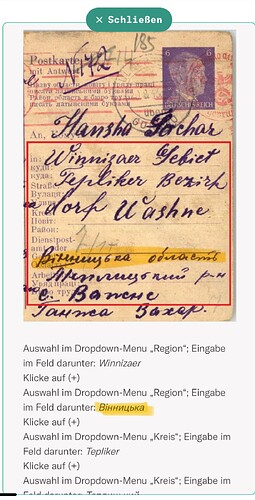 × Schließen
185
Postkarte
mit Antwort
N 172
6
6
DEUTSCHES REICH
An:
Hansha Sachar
in:
Winnizaer Gebiet
Tepliker Bezirk
Straße
dorf Washne
Kreis:
Повіт:
Район:
Dienstpost-
Вінницька область
Теплицький р-н
с. Важне
Ганжа Захар.
Auswahl im Dropdown-Menu „Region“; Eingabe
im Feld darunter: Winnizaer
Klicke auf (+)
Auswahl im Dropdown-Menu „Region“; Eingabe
im Feld darunter: Вінницька
Klicke auf (+)
Auswahl im Dropdown-Menu „Kreis“; Eingabe im
Feld darunter: Tepliker
Klicke auf (+)
Auswahl im Dropdown-Menu „Kreis“; Eingabe im